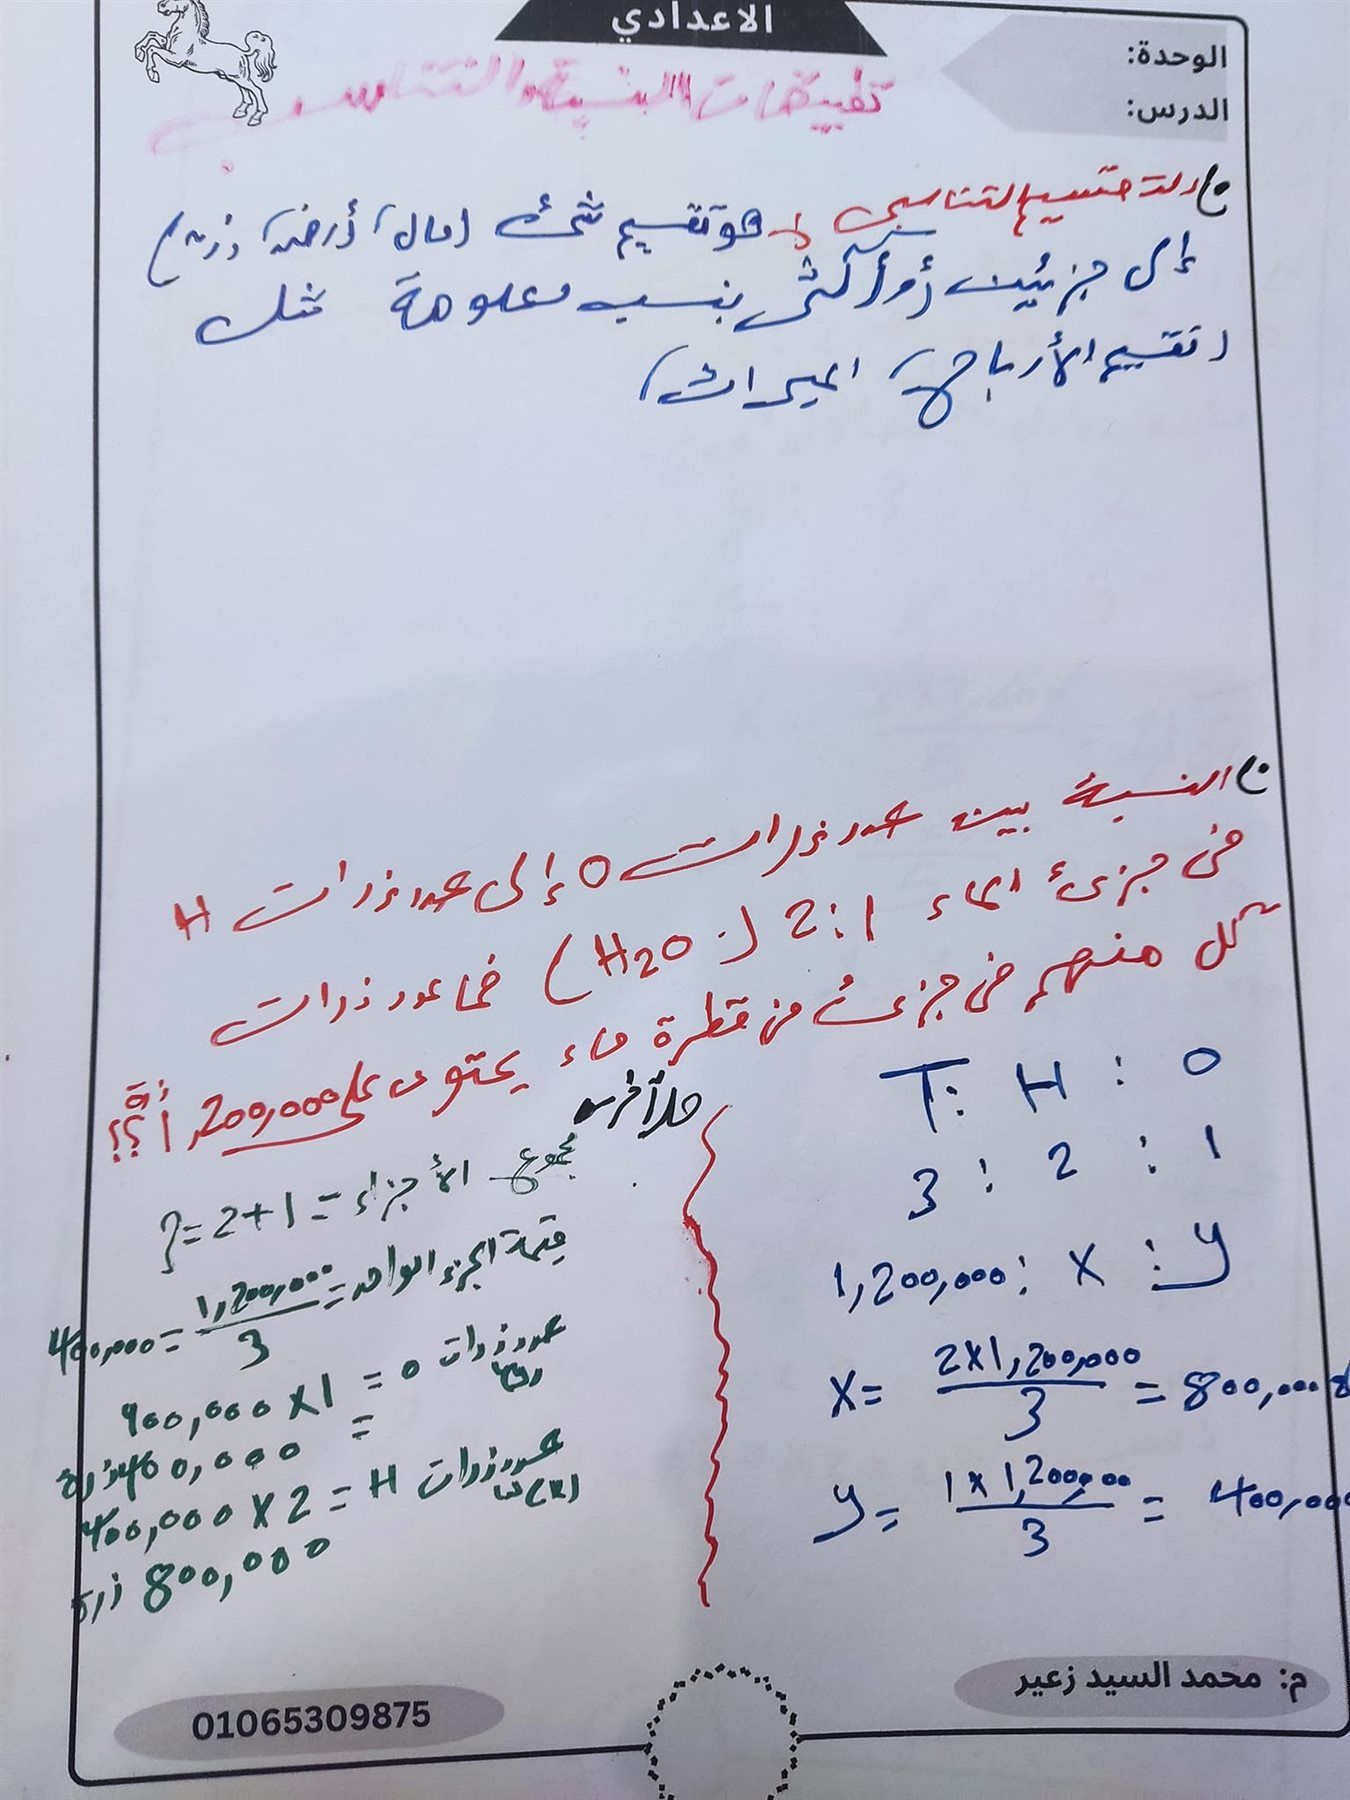 الاعدادي
الوحدة:
الدرس:
تطبيقات النسبة والتناسب
التقسيم التناسبى هو تقسيم شئ (مال، أرض، زرع)
إلى جزئين أو أكثر بنسب معلومة مثل
(تقسيم الأرباح، الميراث)
النسبة بين عدد ذرات O إلى عدد ذرات H
فى جزئ الماء 1:2 (H2O) فما عدد ذرات
كل منهم فى جزئ من قطرة ماء يحتوى على 1,200,000 ذرة؟؟
T : H : O
3 : 2 : 1
1,200,000 : X : y
X = 2×1,200,000 / 3 = 800,000
y = 1×1,200,000 / 3 = 400,000
حل آخر
مجموع الأجزاء = 1+2 = 3
قيمة الجزء الواحد = 1,200,000 / 3 = 400,000
عدد ذرات O = 1×400,000
= 400,000 ذرة
عدد ذرات H = 2×400,000
800,000 ذرة
م: محمد السيد زعير
01065309875